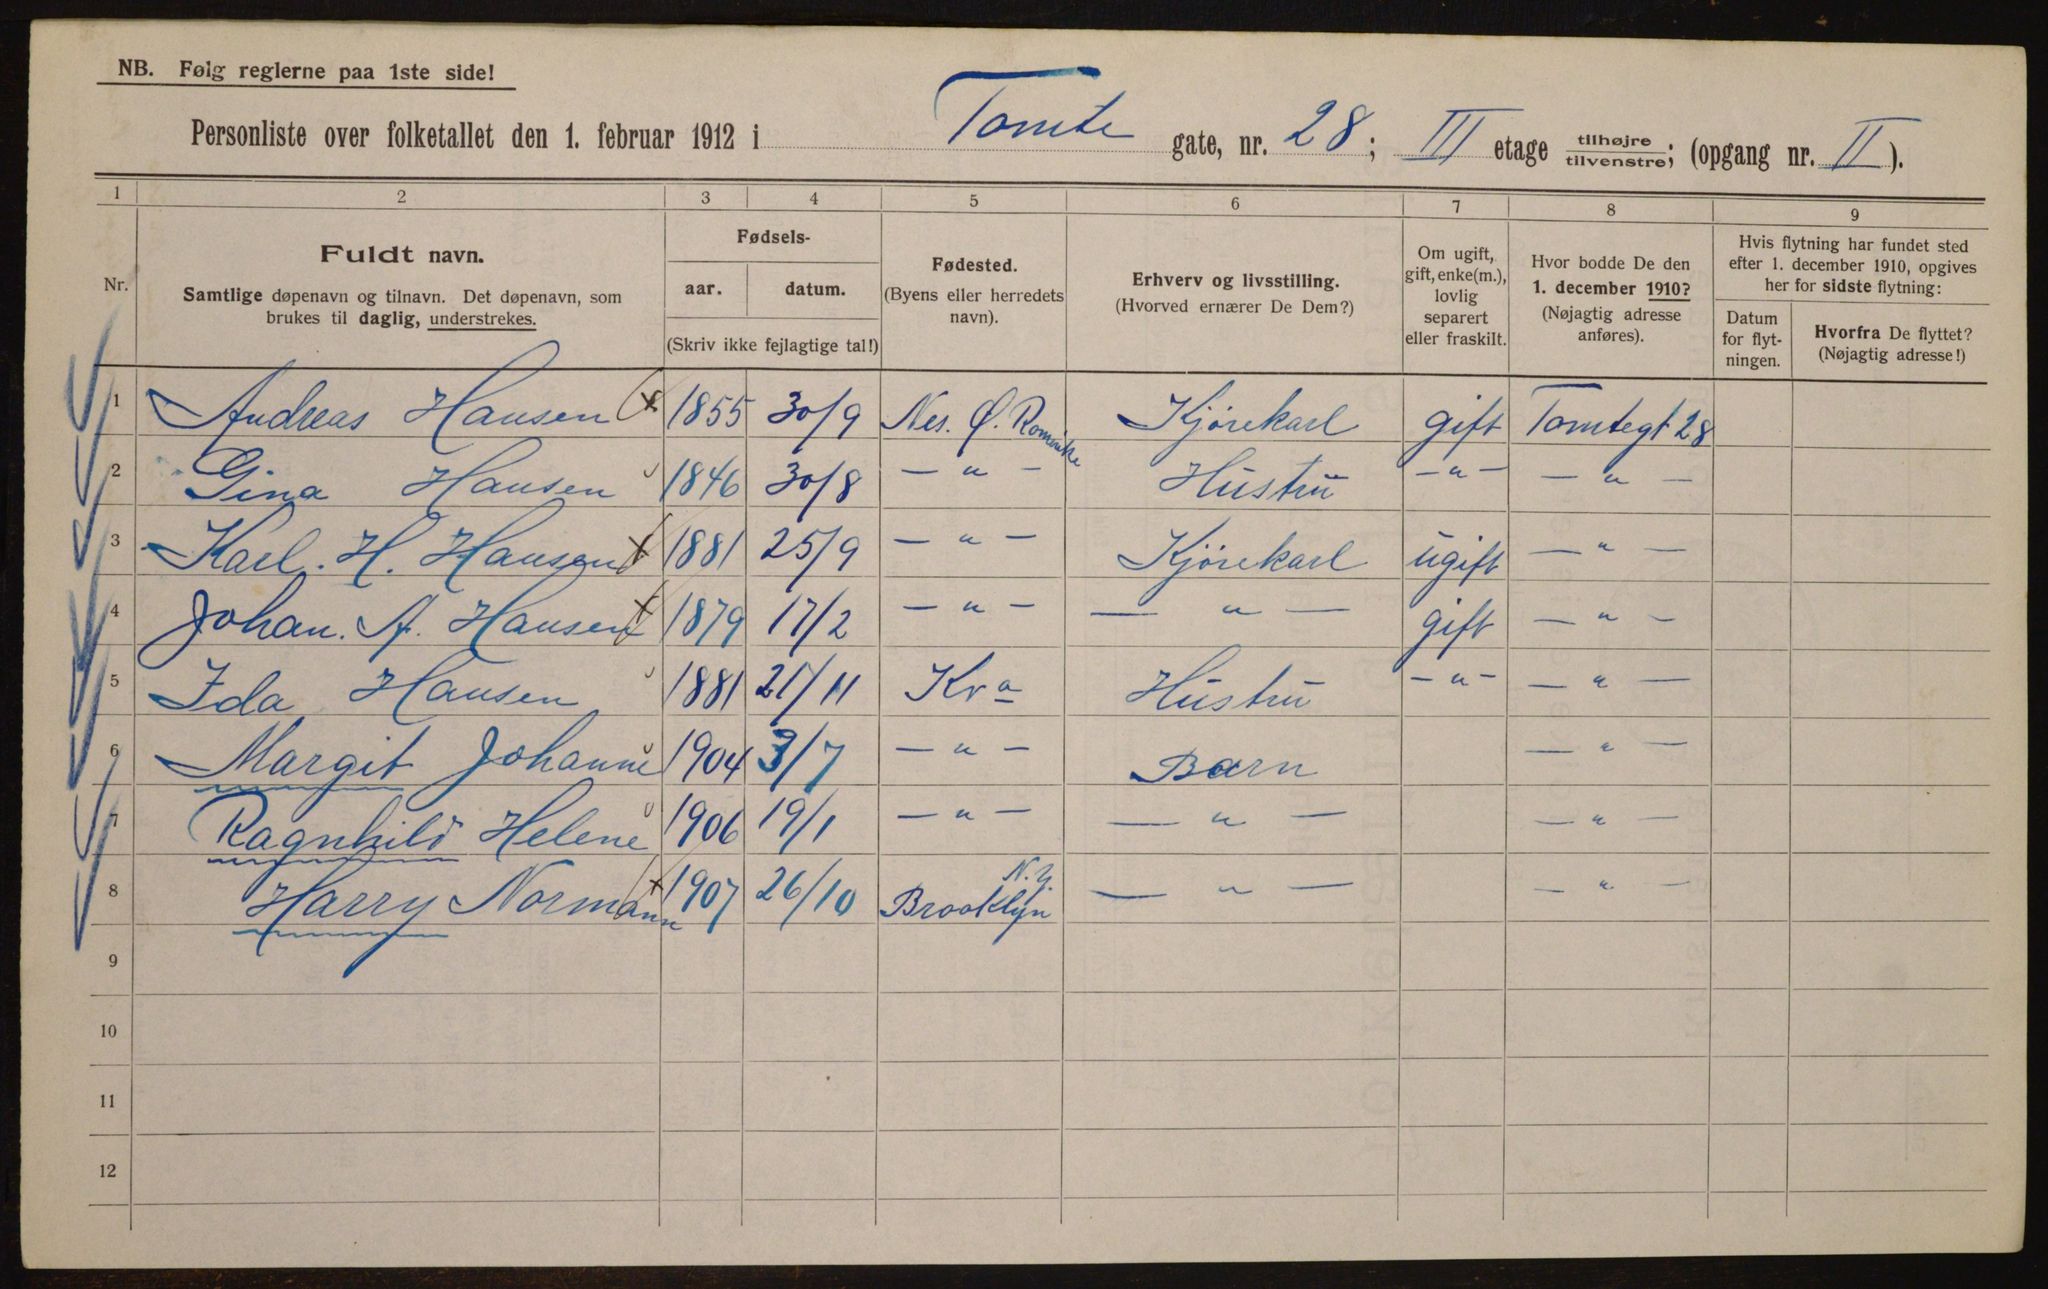 NB. Følg reglerne paa 1ste side!
Personliste over folketallet den 1. februar 1912 i Tomte gate, nr. 28; III etage tilhøjre/tilvenstre; (opgang nr. II).
1 2 3 4 5 6 7 8 9
Nr.
Fuldt navn.
Samtlige døpenavn og tilnavn. Det døpenavn, som
brukes til daglig, understrekes.
Fødsels-
aar. datum.
(Skriv ikke fejlagtige tal!)
Fødested.
(Byens eller herredets
navn).
Erhverv og livsstilling.
(Hvorved ernærer De Dem?)
Om ugift,
gift, enke(m.),
lovlig
separert
eller fraskilt.
Hvor bodde De den
1. december 1910?
(Nøjagtig adresse
anføres).
Hvis flytning har fundet sted
efter 1. december 1910, opgives
her for sidste flytning:
Datum
for flyt-
ningen.
Hvorfra De flyttet?
(Nøjagtig adresse!)
1 Andreas Hansen 1855 30/9 Nes. Ø. Romerike Kjørekarl gift Tomtegt 28
2 Gina Hansen 1846 30/8 — " — Hustru — " — — " —
3 Karl. H. Hansen 1881 25/9 — " — Kjørekarl ugift — " —
4 Johan. A. Hansen 1879 17/2 — " — — " — gift — " —
5 Ida Hansen 1881 21/11 Kra Hustru — " — — " —
6 Margit Johanne 1904 3/7 — " — Barn — " —
7 Ragnhild Helene 1906 19/1 — " — — " — — " —
8 Harry Normann 1907 26/10 Brooklyn N.Y. — " — — " —
9
10
11
12